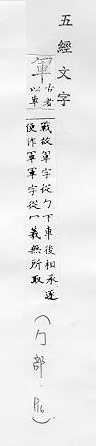 五經文字
軍
古者
以車
戰故軍字從勹下車後相承遂
便作軍軍字從冖義無所取
(勹部.P16)